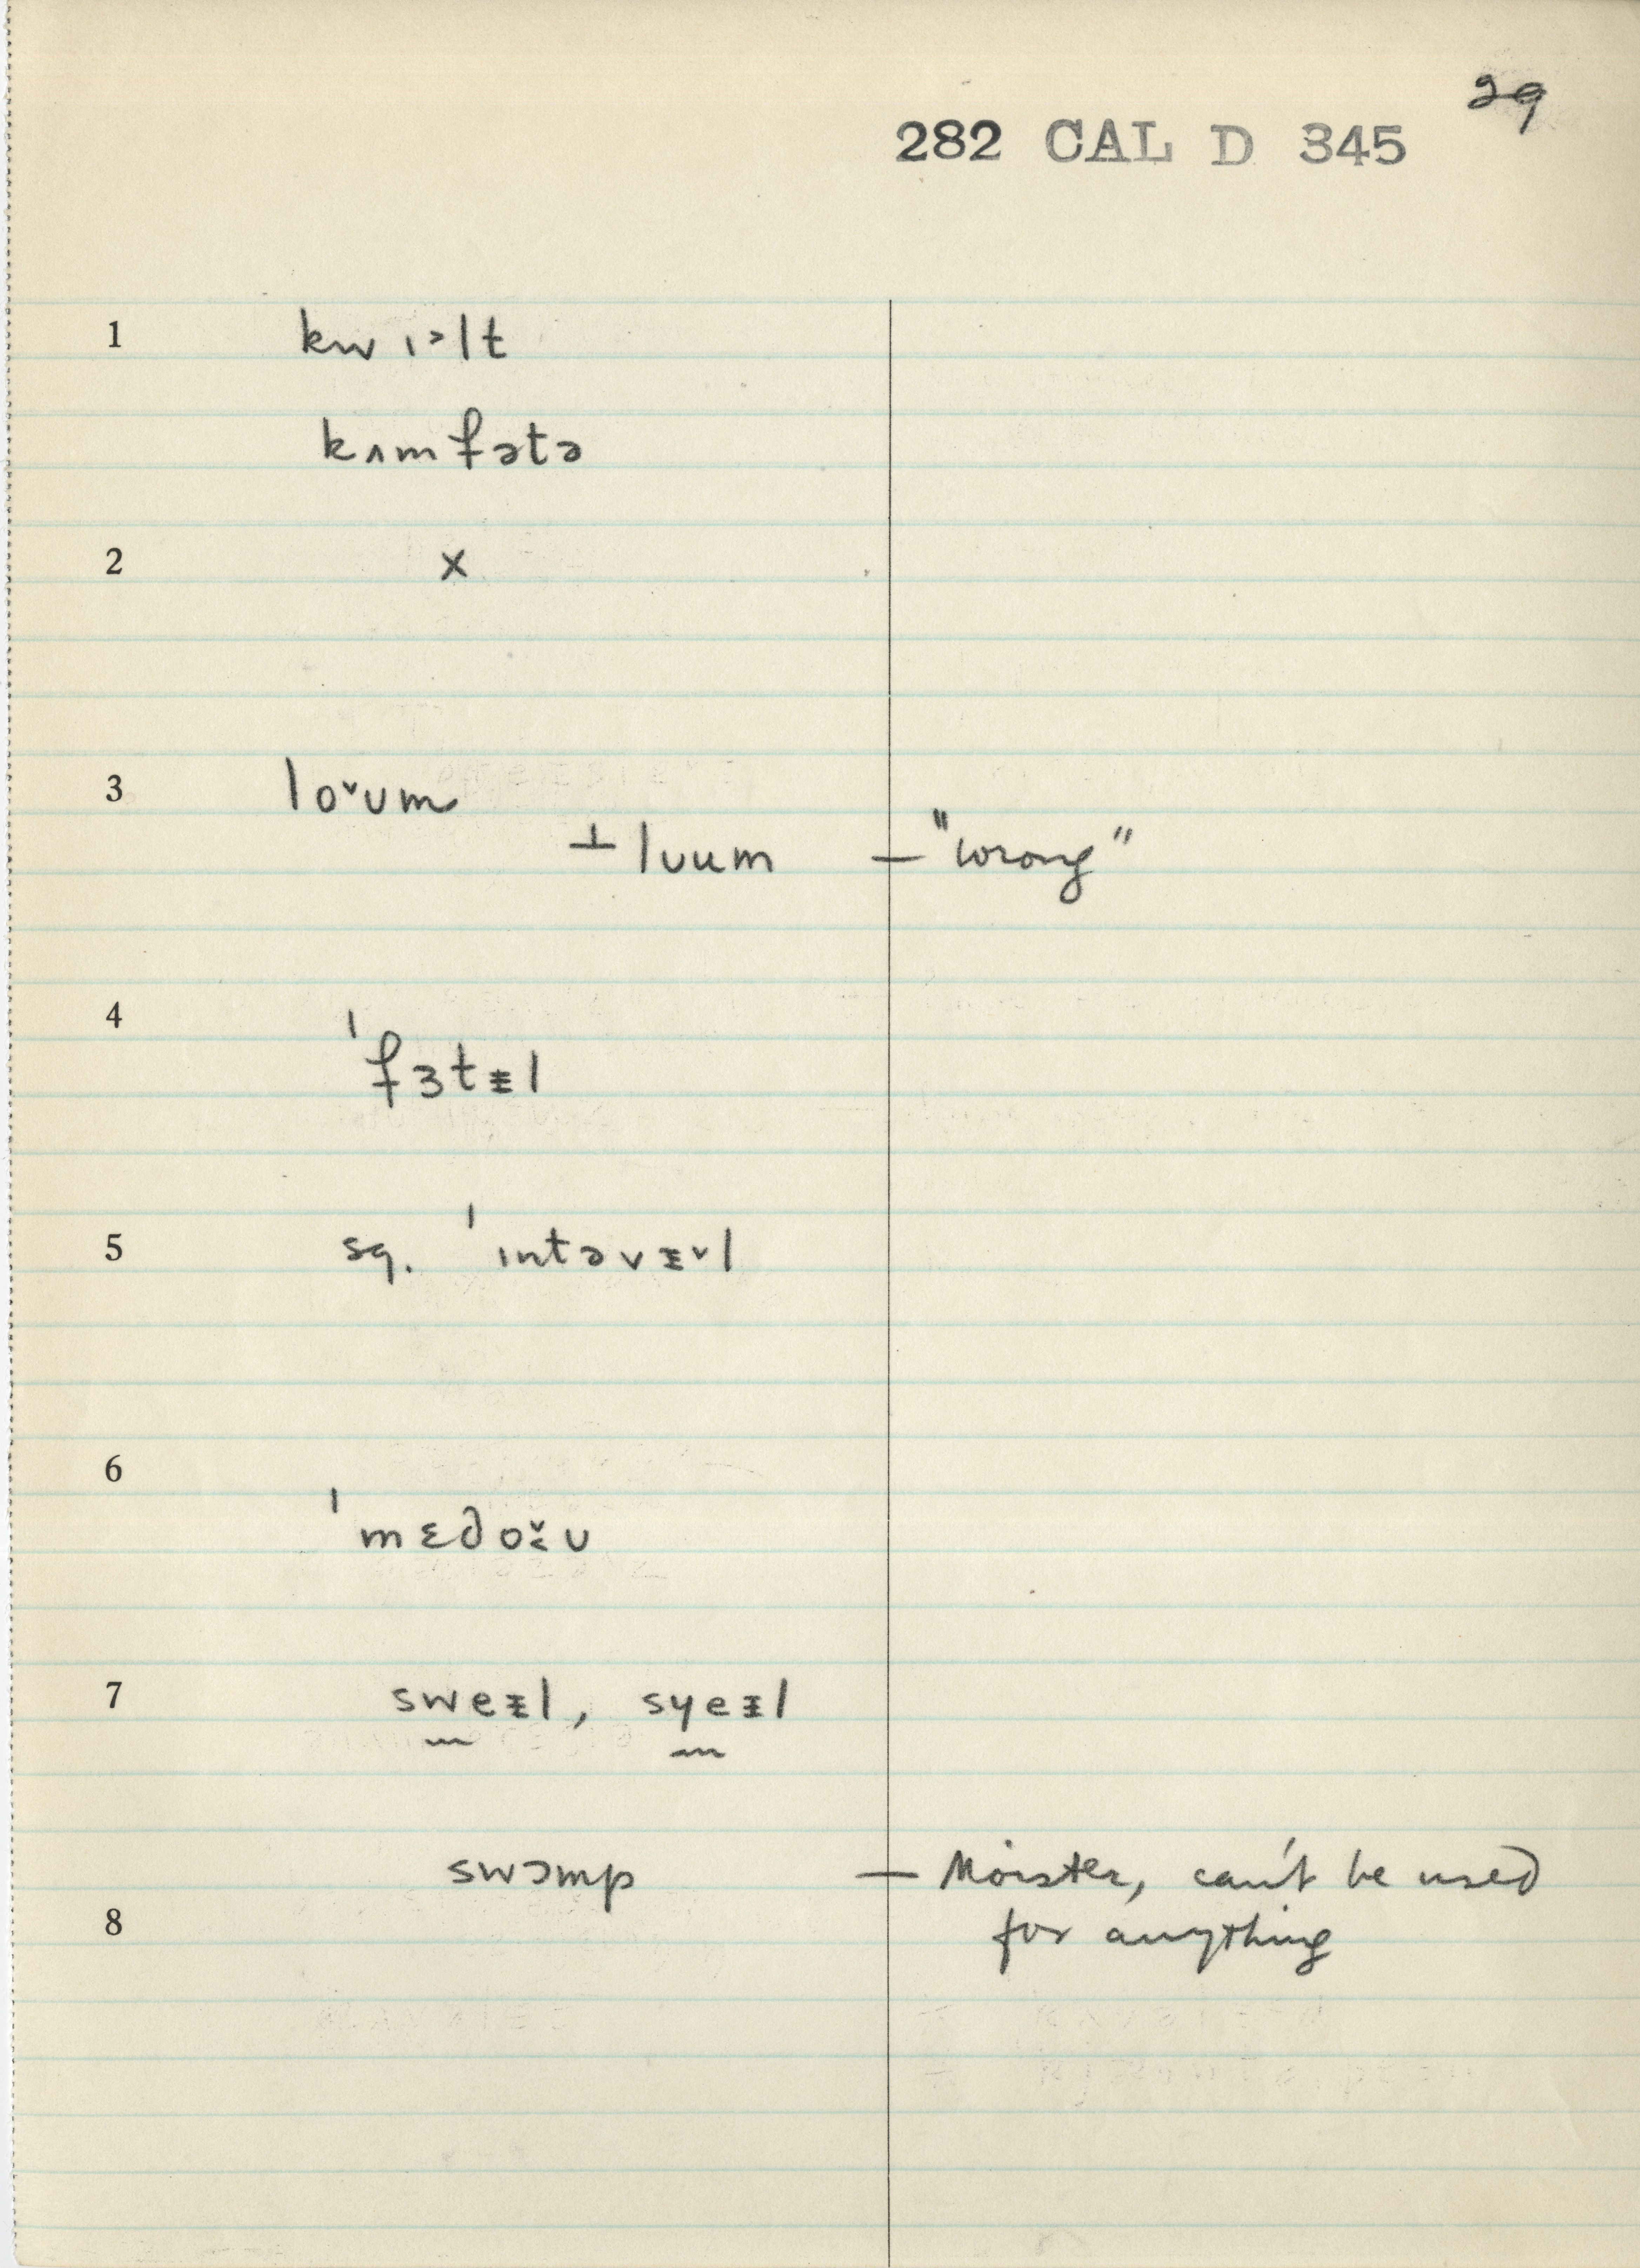 29
282 CAL D 345
1 kwɪ˃lt
kʌmfətə
2 x
3 lo˅ʊm
⊥ lʊum — "wrong"
4 ˈfɜtɫ̵l
5 sq. ˈɪntəvɫ˅l
6 ˈmɛdo˅ʊ
7 sweɪl, syeɪl
swɔmp — Moister, can't be used
8 for anything